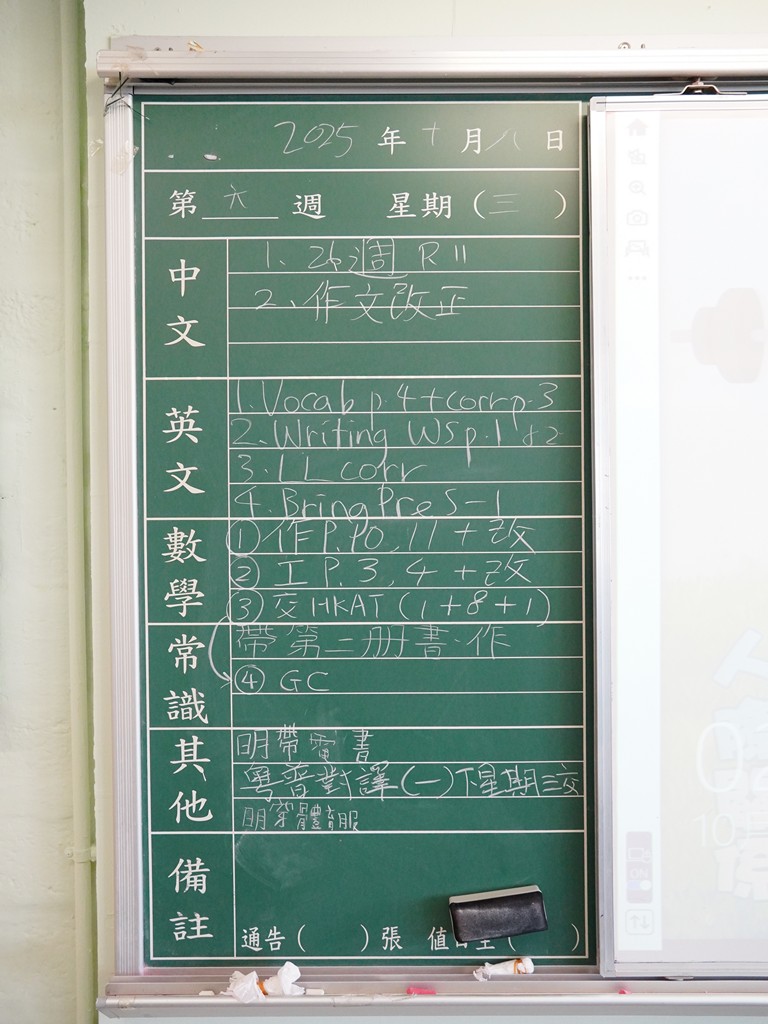 2025 年 十 月 八 日
第 六 週 星期 ( 三 )
中文
1、26週 R 11
2、作文改正
英文
1. Vocab p.4 + corr p.3
2. Writing WS p.1 &2
3. LL corr
4. Bring Pre S-1
數學
① 作 P.10, 11 + 改
② 工 P.3, 4 + 改
③ 交 HKAT (1+8+1)
常識
帶第二册書、作
④ GC
其他
明帶電書
粵普對譯(一)下星期三交
明穿體育服
備註
通告 ( ) 張 值日生 ( )